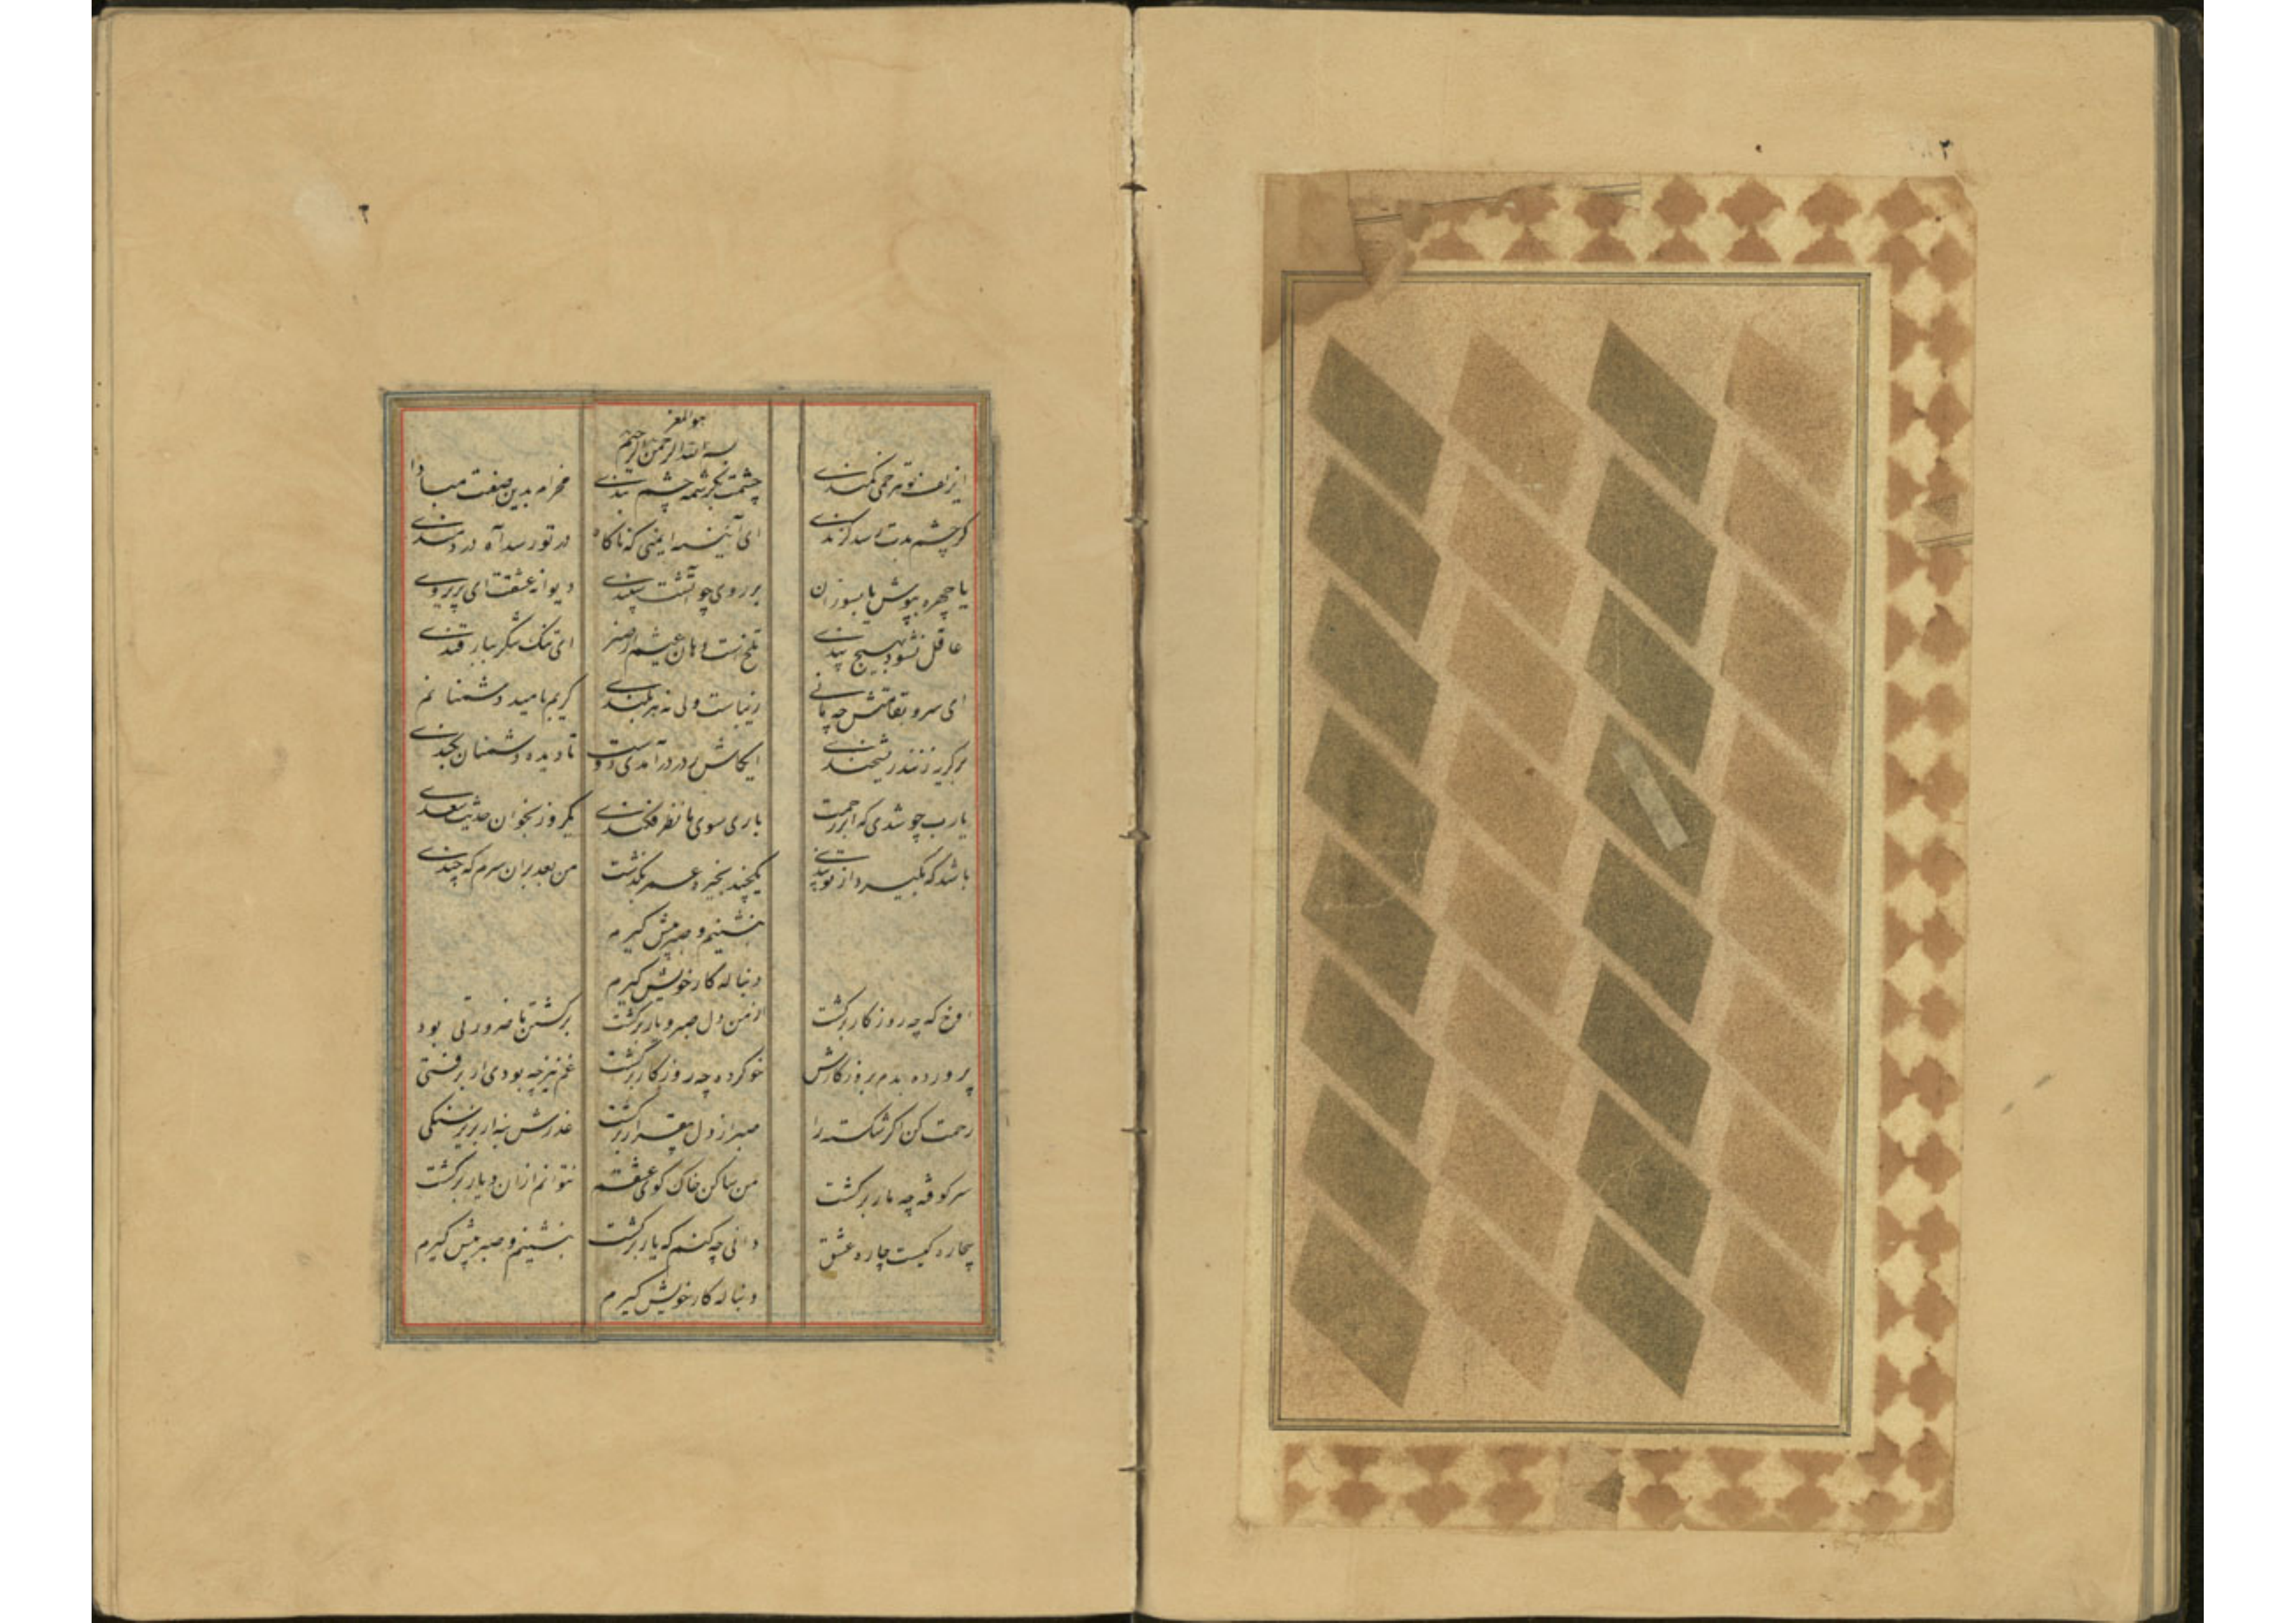 ۲
۲
هو المعز
بسم الله الرحمن الرحیم
ای زلف تو هر خمی کمندی چشمت بکرشمه چشم بندی مخرام بدین صفت مبادا
کز چشم بدت رسد کزندی ای آینه ایمنی که ناکاه در تو رسد آه دردمندی
یا چهره بپوش یا بسوزان بر روی چو آتشت سپندی دیوانه عشقت ای پریروی
عاقل نشود بهیچ پندی تلخست دهان عیشم از صبر ای تنک شکر بیار قندی
ای سرو بقامتش چه مانی زیباست ولی نه هر بلندی کریم بامید و دشمنانم
بر کریه زنند ریشخندی ایکاش ز در درآمدی دوست تا دیده دشمنان بکندی
یارب چو شدی که از رحمت باری سوی ما نظر فکندی یکروز بخوان حدیث سعدی
باشد که بگیرد از تو پندی یکچند بخیره عمر بکذشت من بعد بران سرم که چندی
بنشینم و صبر پیش کیرم
دنباله کار خویش کیرم
اوخ که چه روزکار برکشت از من دل و صبر و یار برکشت برکشتن ما ضرورتی بود
پرورده بدم بروزکارش خو کرده چه روزکار برکشت غم نیز چه بودی ار برفتی
رحمت کن اکر شکسته را صبر از دل بیقرار برکشت عذرش بنه ار بزیر سنکی
سرکوفته چه مار برکشت من ساکن خاک کوی عشقم نتوانم ازان دیار برکشت
بیچاره کیست چاره عشق دانی چه کنم که یار برکشت بنشینم و صبر پیش کیرم
دنباله کار خویش کیرم